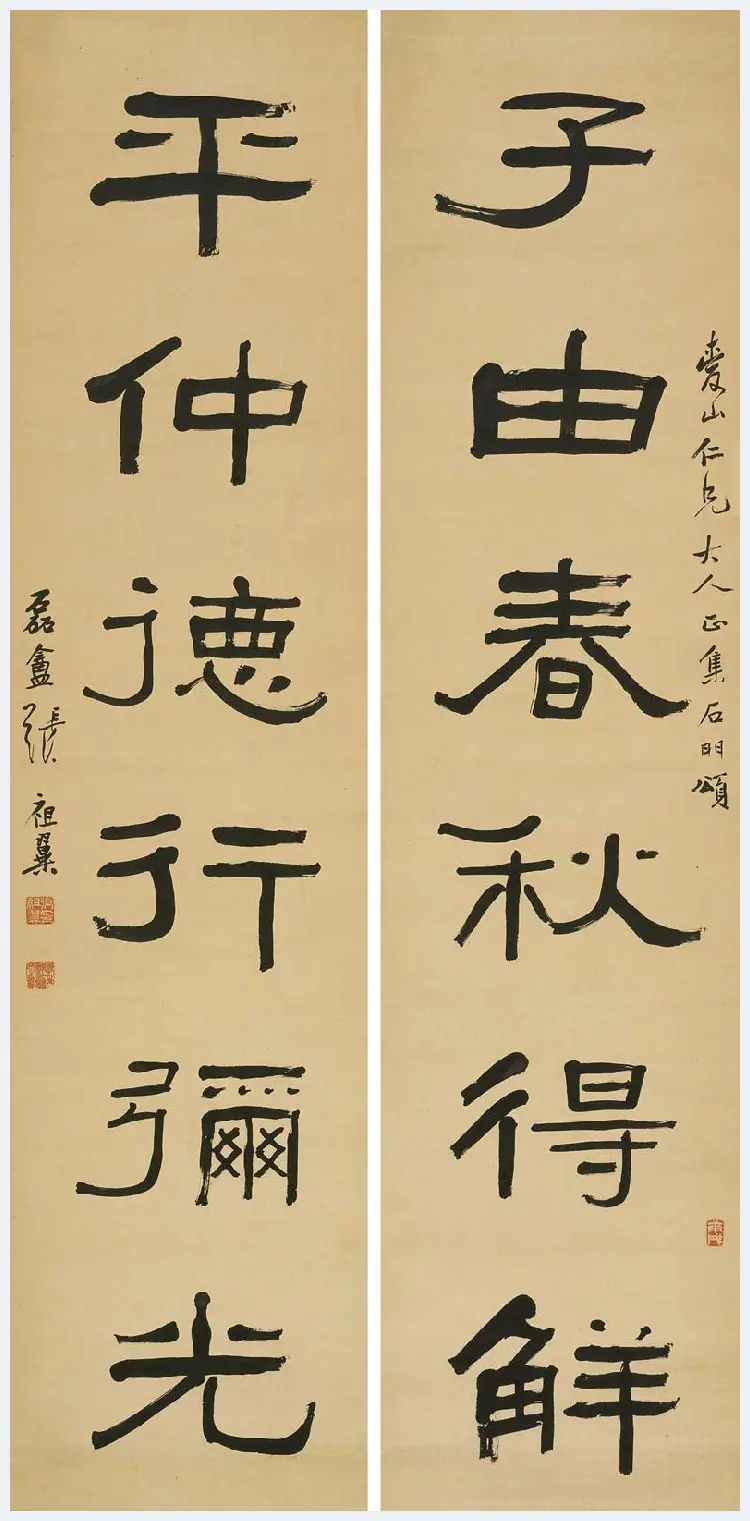 愛山仁兄大人正集石門頌
子由春秋得觧
平仲德行彌光
磊盦張祖翼